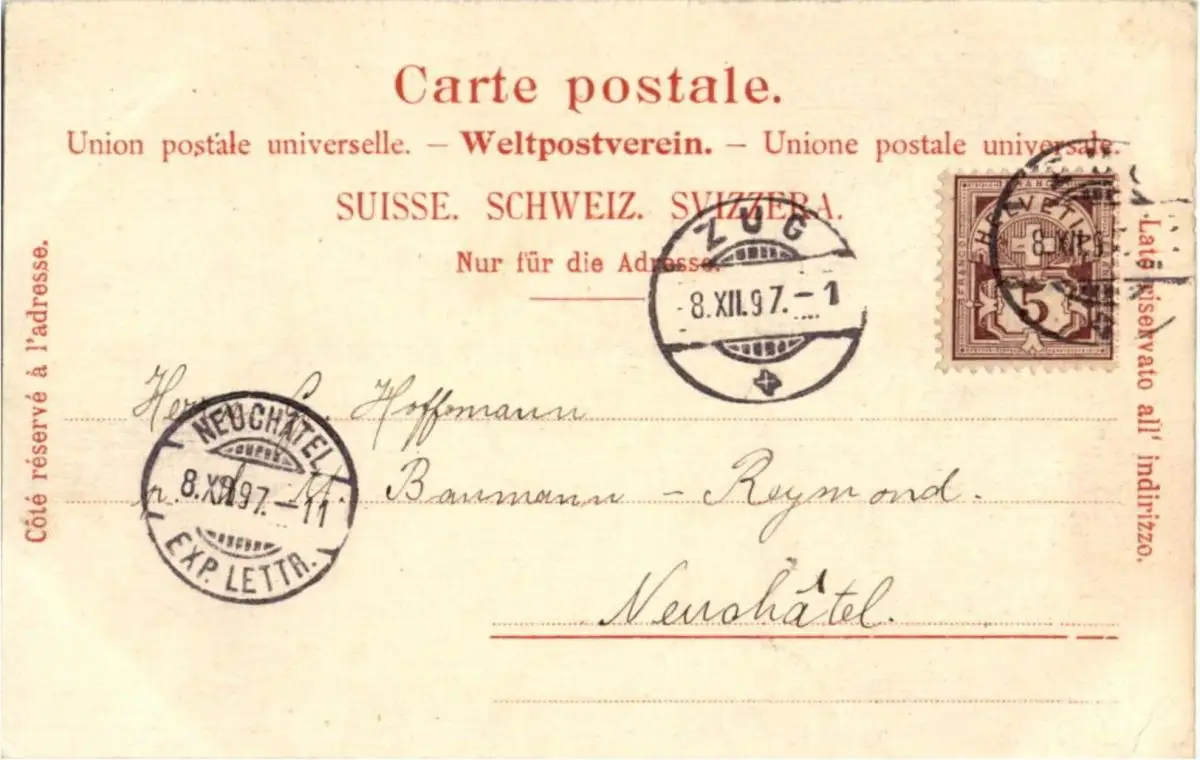 Carte postale.
Union postale universelle. – Weltpostverein. – Unione postale universale.
SUISSE. SCHWEIZ. SVIZZERA.
Nur für die Adresse.
Côté réservé à l'adresse.
Lato riservato all' indirizzo.
ZUG
8.XII.97.–1
HELVETIA
5
8.XII.9
Hoffmann
Baumann – Reymond.
Neuchâtel.
NEUCHATEL
8.XII.97.–11
EXP. LETTR.